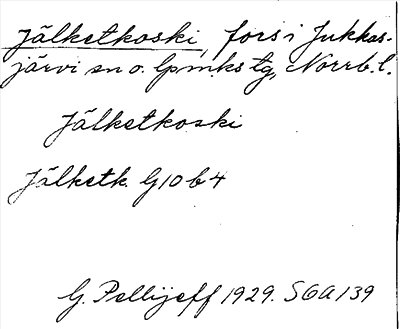 Jälketkoski, fors i Jukkas-
järvi sn o. lpmks tg, Norrb. l.
Jälketkoski
Jälketk. G10b4
G. Pellijeff 1929. SOA 139